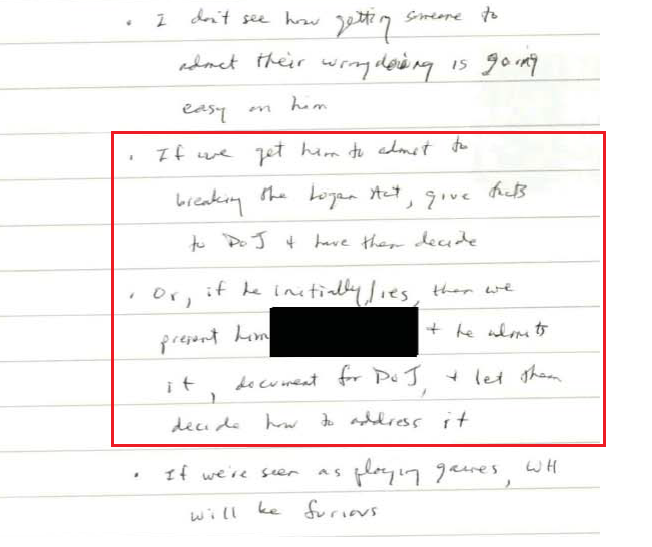 • I don't see how getting someone to
admit their wrongdoing is going
easy on him
• If we get him to admit to
breaking the Logan Act, give facts
to DOJ + have them decide
• Or, if he initially lies, then we
present him + he admits
it, document for DOJ, + let them
decide how to address it
• If we're seen as playing games, WH
will be furious